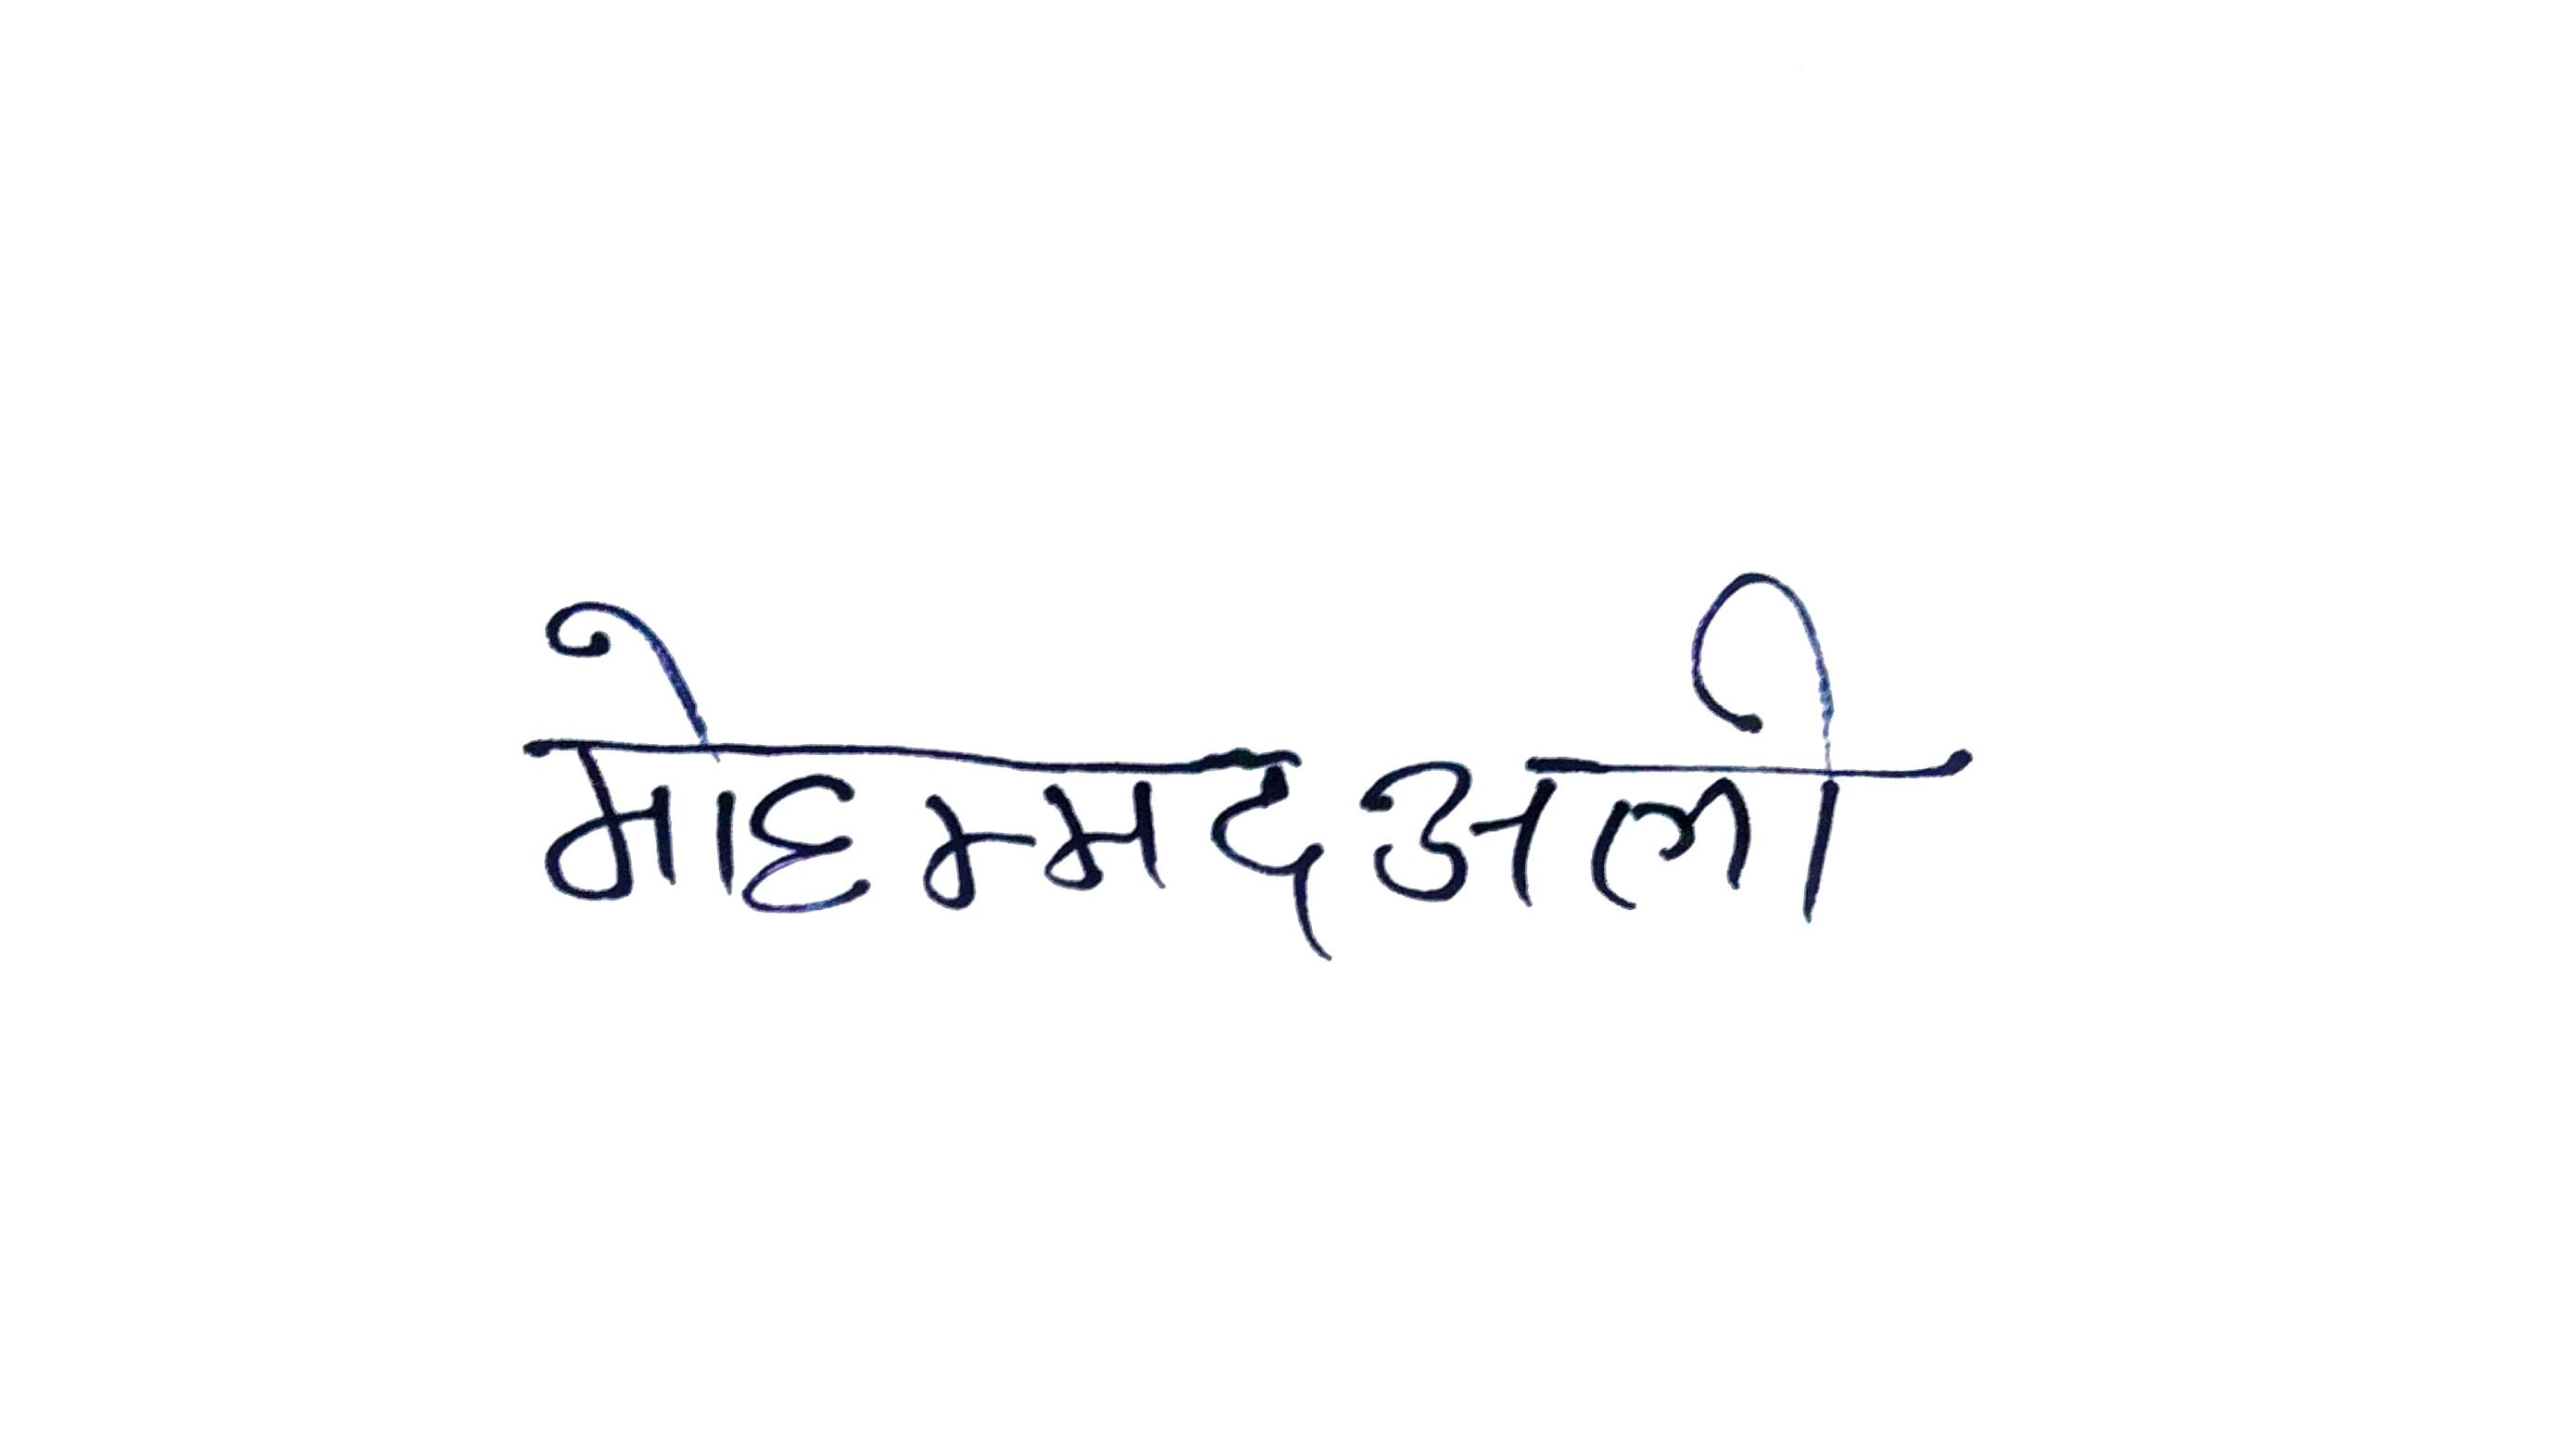 मोहम्मद अली